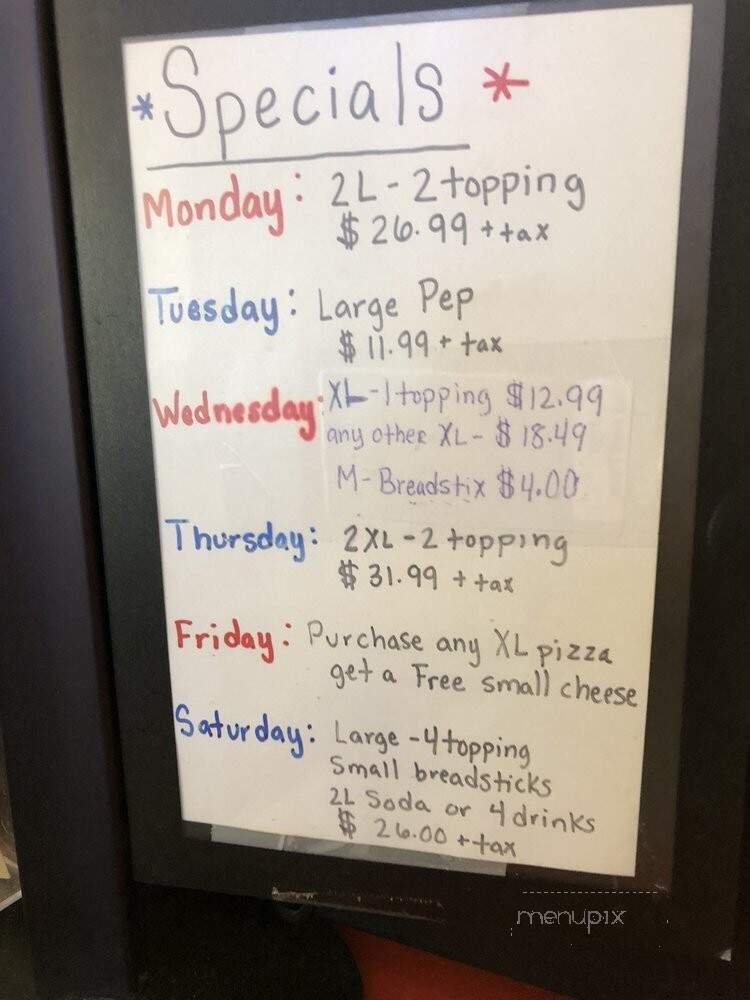 *Specials *
Monday: 2L - 2 topping
$ 26.99 + tax
Tuesday: Large Pep
$ 11.99 + tax
Wednesday: XL - 1 topping $12.99
any other XL - $ 18.49
M - Breadstix $4.00
Thursday: 2XL - 2 topping
$ 31.99 + tax
Friday: Purchase any XL pizza
get a Free small cheese
Saturday: Large - 4 topping
Small breadsticks
2L Soda or 4 drinks
$ 26.00 + tax
menupix